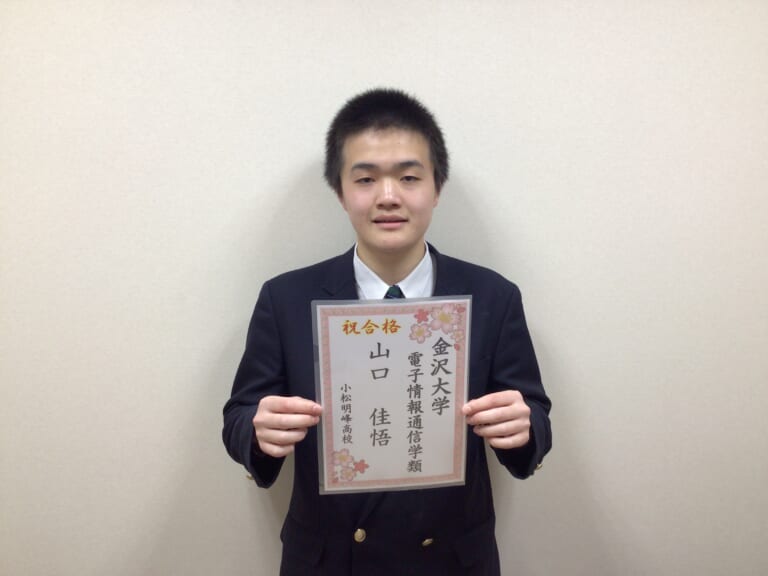 祝合格
金沢大学
電子情報通信学類
山口 佳悟
小松明峰高校